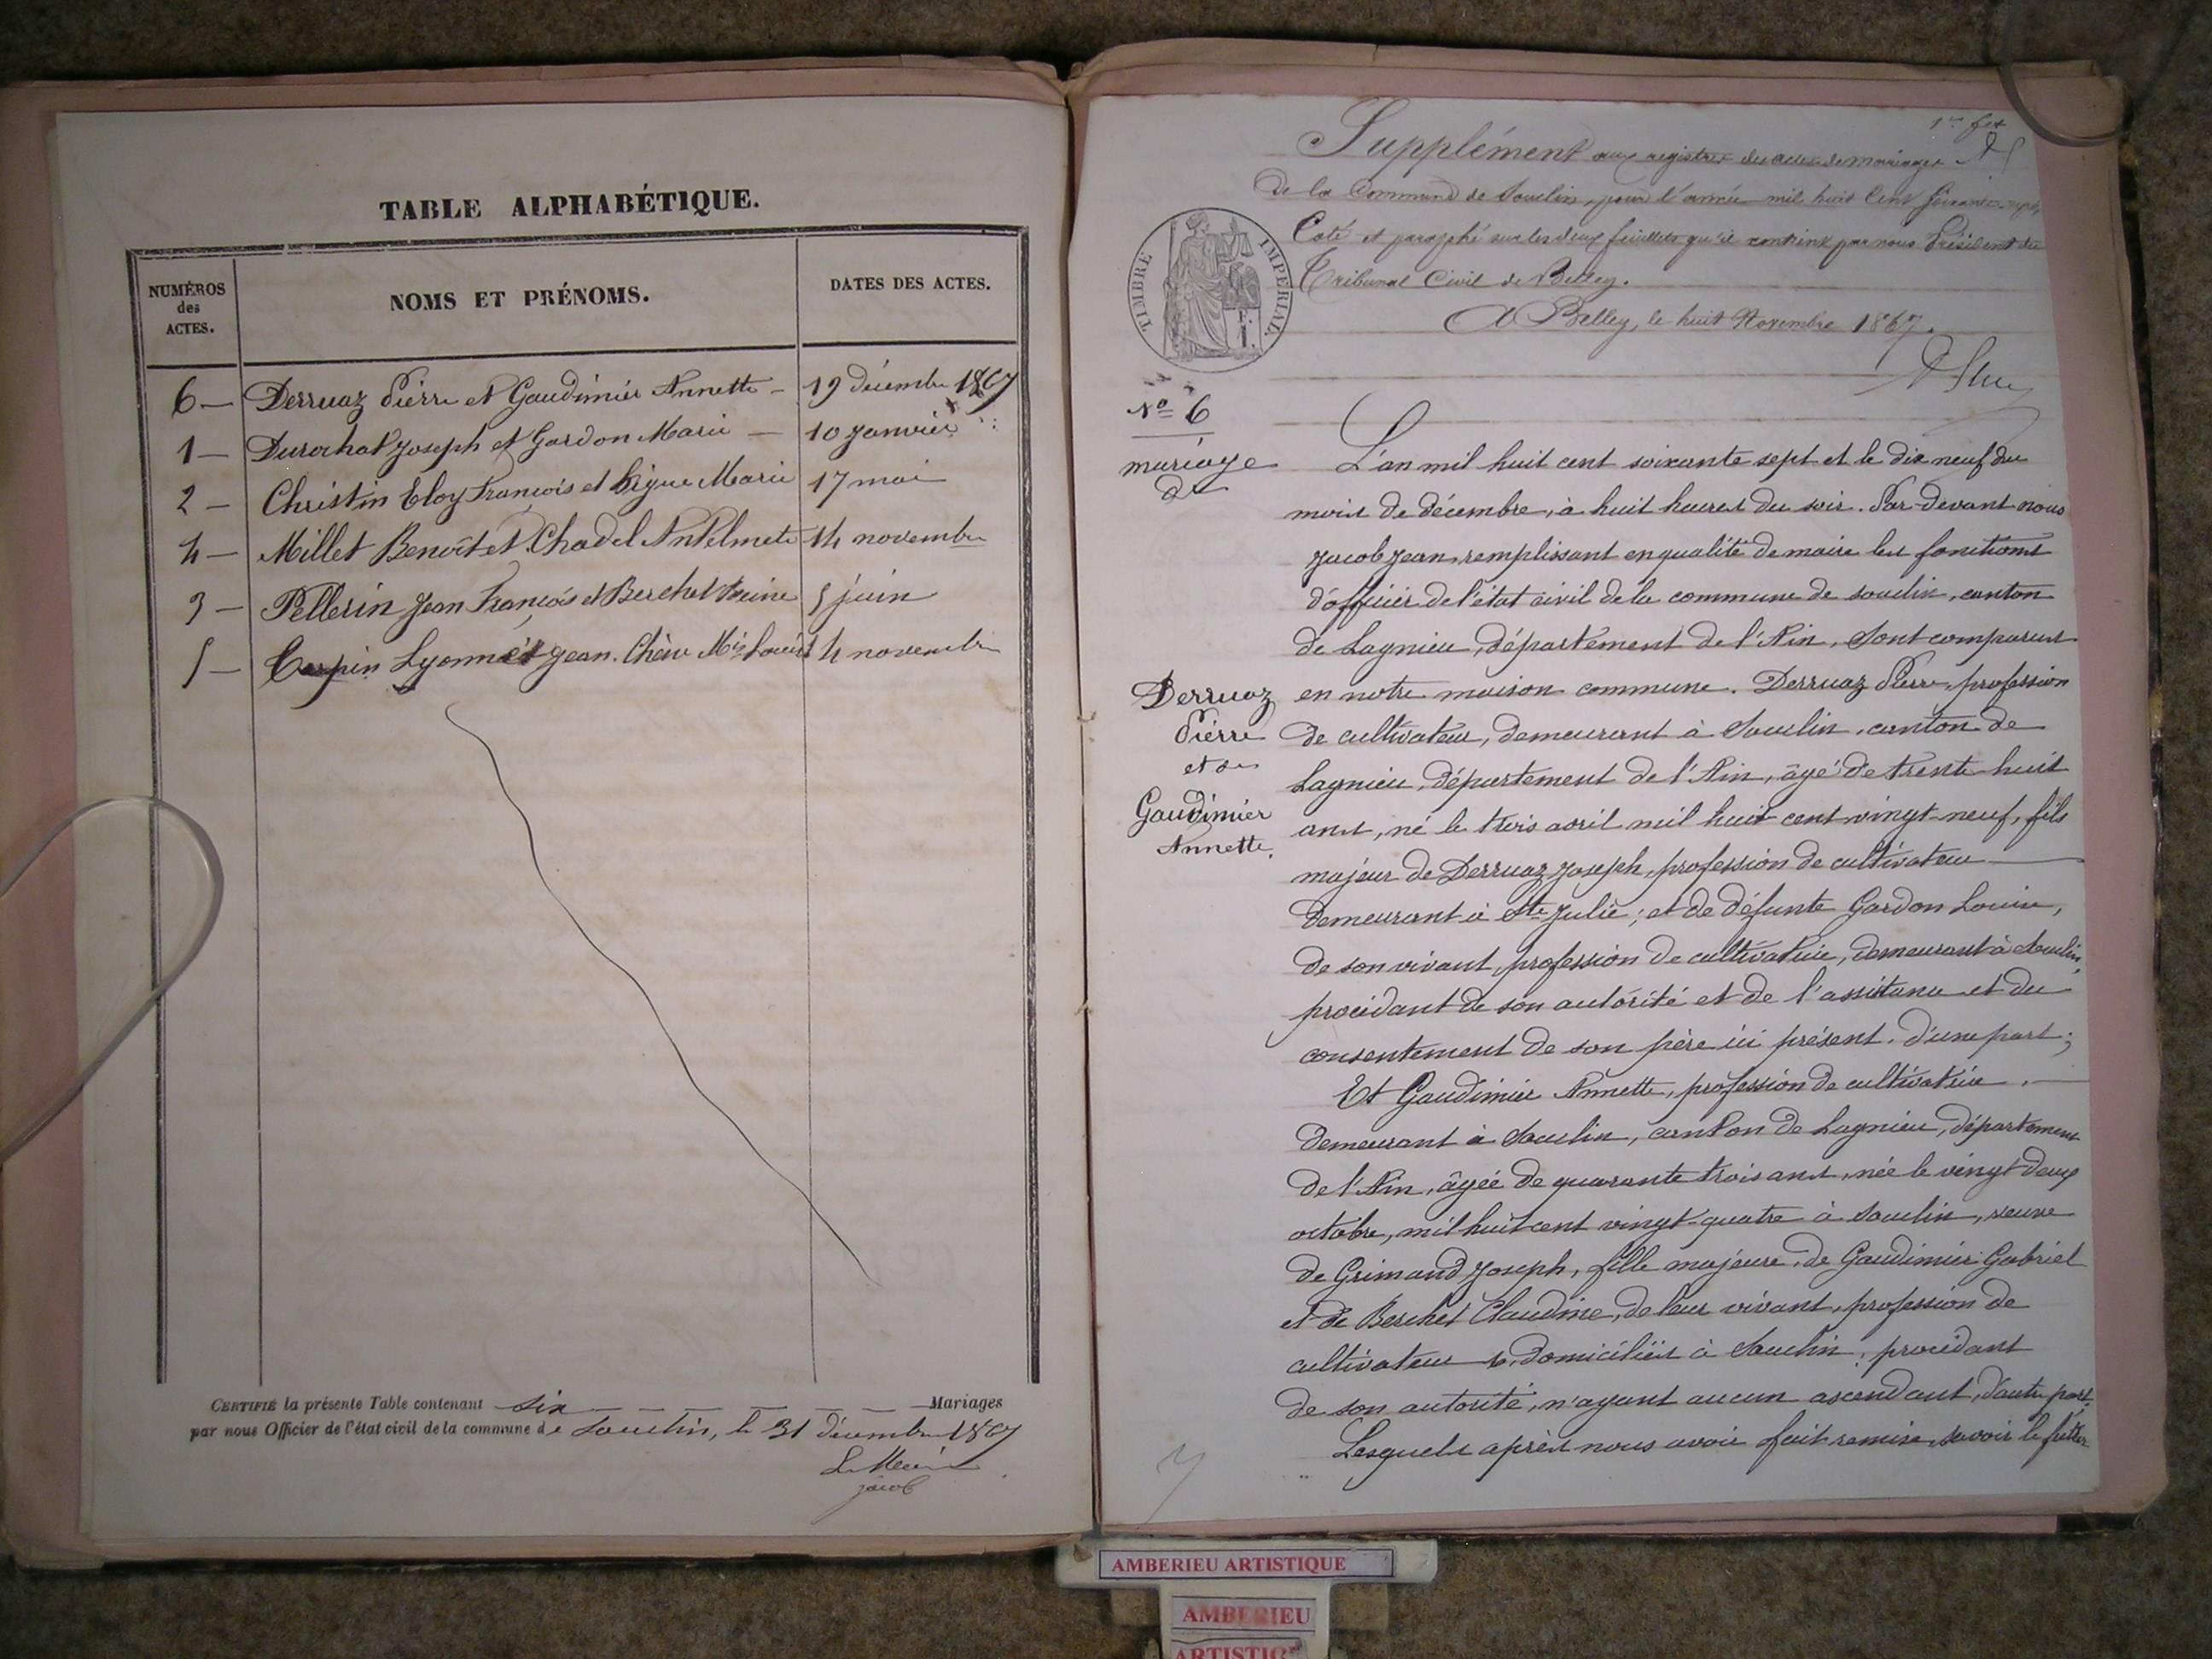 TABLE ALPHABÉTIQUE.
NUMÉROS des ACTES.
NOMS ET PRÉNOMS.
DATES DES ACTES.
6 — Derruaz Pierre et Gaudimier Annette — 19 décembre 1867
1 — Durochat Joseph et Gardon Marie — 10 janvier
2 — Christin Eloy François et Marie 17 mai
4 — Millet Benoît et Chadel Antelmete 14 novembre
3 — Pellerin Jean François et Berchet Reine 5 juin
5 — Lyonnet Jean. Chêne Mie Louise 14 novembre
CERTIFIÉ la présente Table contenant six Mariages
par nous Officier de l'état civil de la commune de Souclin, le 31 décembre 1867
Le Maire
Jacob
1er fet
Supplément aux registres des actes de mariages
De la Commune de Souclin, pour l'année mil huit cent soixante-sept,
Coté et paraphé sur les deux feuillets qu'il contient par nous Président du
Tribunal Civil de Belley.
A Belley, le huit Novembre 1867.
TIMBRE IMPÉRIAL.
No 6
mariage
de
Derruaz
Pierre
et de
Gaudimier
Annette.
L'an mil huit cent soixante sept et le dix neuf du
mois de décembre, à huit heures du soir. Par-devant nous
Jacob Jean, remplissant en qualité de maire les fonctions
d'officier de l'état civil de la commune de souclin, canton
de Lagnieu, département de l'Ain, sont comparus
en notre maison commune. Derruaz Pierre, profession
de cultivateur, demeurant à Souclin, canton de
Lagnieu, département de l'Ain, âgé de trente-huit
ans, né le trois avril mil huit cent vingt-neuf, fils
majeur de Derruaz Joseph, profession de cultivateur
demeurant à Ste Julie; et de défunte Gardon Louise,
de son vivant, profession de cultivatrice, demeurant à Souclin,
procédant de son autorité et de l'assistance et du
consentement de son père ici présent. d'une part;
Et Gaudimier Annette, profession de cultivatrice.
demeurant à Souclin, canton de Lagnieu, département
de l'Ain, âgée de quarante trois ans, née le vingt deux
octobre, mil huit cent vingt-quatre à Souclin, veuve
de Grimand Joseph, fille majeure, de Gaudimier Gabriel
et de Berchet Claudine, de leur vivant, profession de
cultivateurs, domiciliés à Souclin, procédant
de son autorité, n'ayant aucun ascendant, d'autre part.
Lesquels après nous avoir fait remise, savoir le futur
AMBERIEU ARTISTIQUE
AMBERIEU
ARTISTIQUE